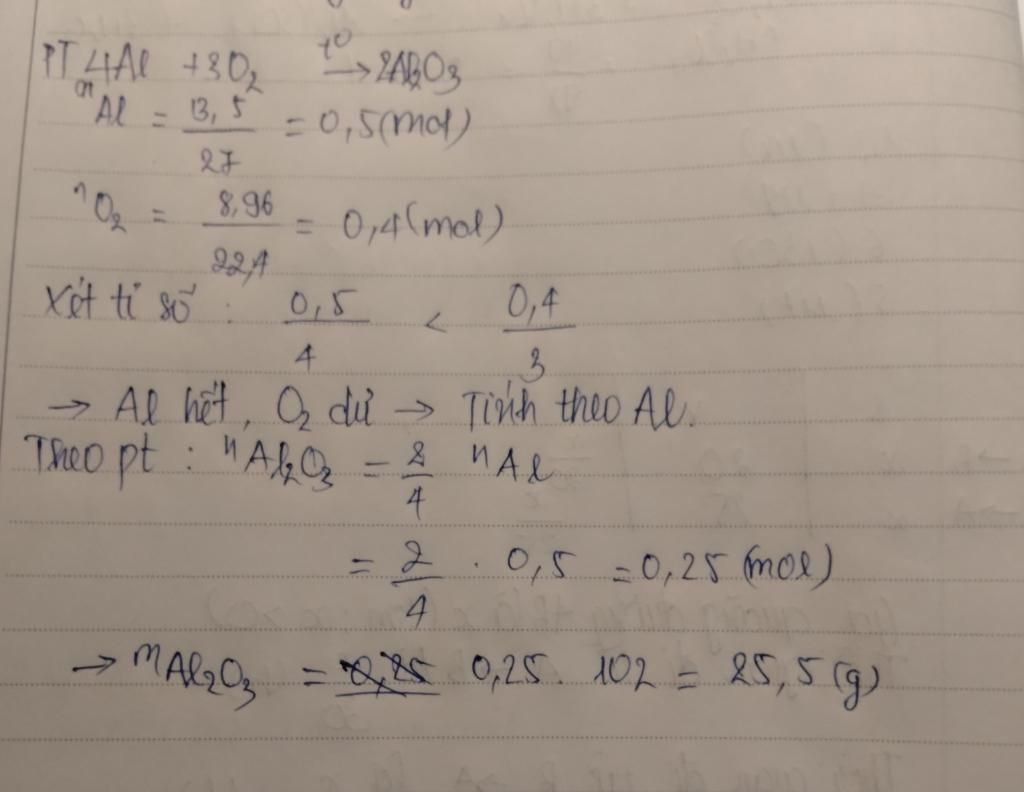 PT 4Al + 3O2 t° → 2Al2O3
nAl = 13,5 / 27 = 0,5 (mol)
nO2 = 8,96 / 22,4 = 0,4 (mol)
Xét tỉ số : 0,5 / 4 < 0,4 / 3
→ Al hết, O2 dư → Tính theo Al.
Theo pt : nAl2O3 = 2 / 4 nAl
= 2 / 4 . 0,5 = 0,25 (mol)
→ mAl2O3 = 0,25 . 102 = 25,5 (g)